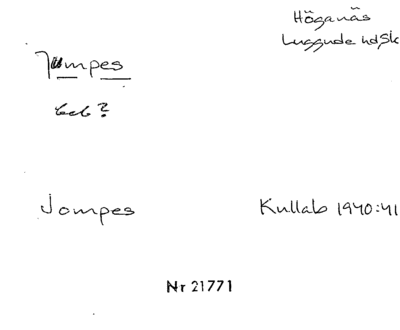 Höganäs
Luggude hd Sk
Jumpes
beb?
Jompes
Kullab 1940:41
Nr 21771